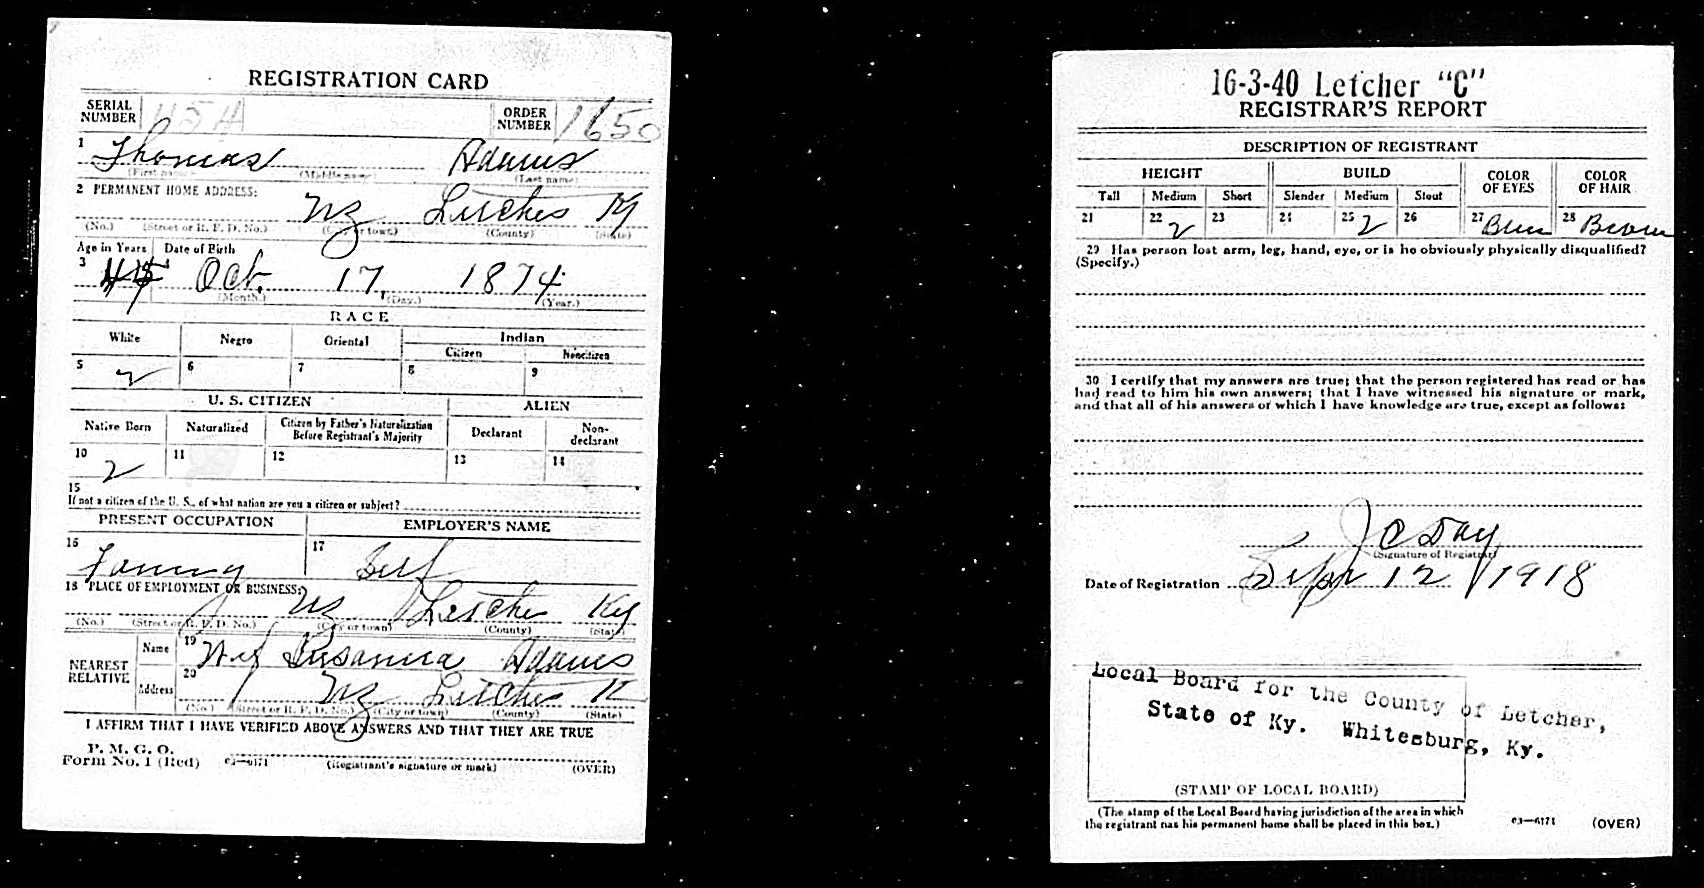 REGISTRATION CARD
SERIAL NUMBER 45A ORDER NUMBER 1650
1 Thomas Adams
(First name) (Middle name) (Last name)
2 PERMANENT HOME ADDRESS:
Letcher Ky
(No.) (Street or R. F. D. No.) (City or town) (County) (State)
Age in Years Date of Birth
3 4 Oct. 17, 1874
(Month.) (Day.) (Year.)
RACE
White Negro Oriental Indian
Citizen Noncitizen
5 6 7 8 9
U. S. CITIZEN ALIEN
Native Born Naturalized Citizen by Father's Naturalization Before Registrant's Majority Declarant Non-declarant
10 11 12 13 14
15
If not a citizen of the U. S., of what nation are you a citizen or subject?
PRESENT OCCUPATION EMPLOYER'S NAME
16 Farming 17 Self
18 PLACE OF EMPLOYMENT OR BUSINESS:
Letcher Ky
(No.) (Street or R. F. D. No.) (City or town) (County) (State)
NEAREST RELATIVE Name 19 Wif Susanna Adams
Address 20 Letcher K
(No.) (Street or R. F. D. No.) (City or town) (County) (State)
I AFFIRM THAT I HAVE VERIFIED ABOVE ANSWERS AND THAT THEY ARE TRUE
P. M. G. O.
Form No. 1 (Red) 03—6171 (Registrant's signature or mark) (OVER)
16-3-40 Letcher "C"
REGISTRAR'S REPORT
DESCRIPTION OF REGISTRANT
HEIGHT BUILD COLOR OF EYES COLOR OF HAIR
Tall Medium Short Slender Medium Stout
21 22 23 24 25 26 27 Blue 28 Brown
29 Has person lost arm, leg, hand, eye, or is he obviously physically disqualified?
(Specify.)
30 I certify that my answers are true; that the person registered has read or has
had read to him his own answers; that I have witnessed his signature or mark,
and that all of his answers of which I have knowledge are true, except as follows:
J C Day
(Signature of Registrar)
Date of Registration Sept 12 1918
Local Board for the County of Letcher,
State of Ky. Whitesburg, Ky.
(STAMP OF LOCAL BOARD)
(The stamp of the Local Board having jurisdiction of the area in which
the registrant has his permanent home shall be placed in this box.)
03—6171 (OVER)